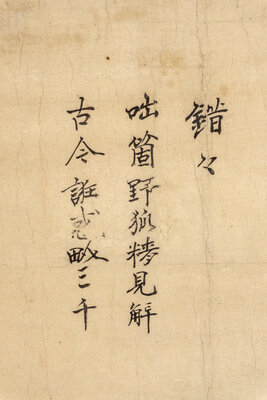 錯々
咄箇野狐精見解
古今三千